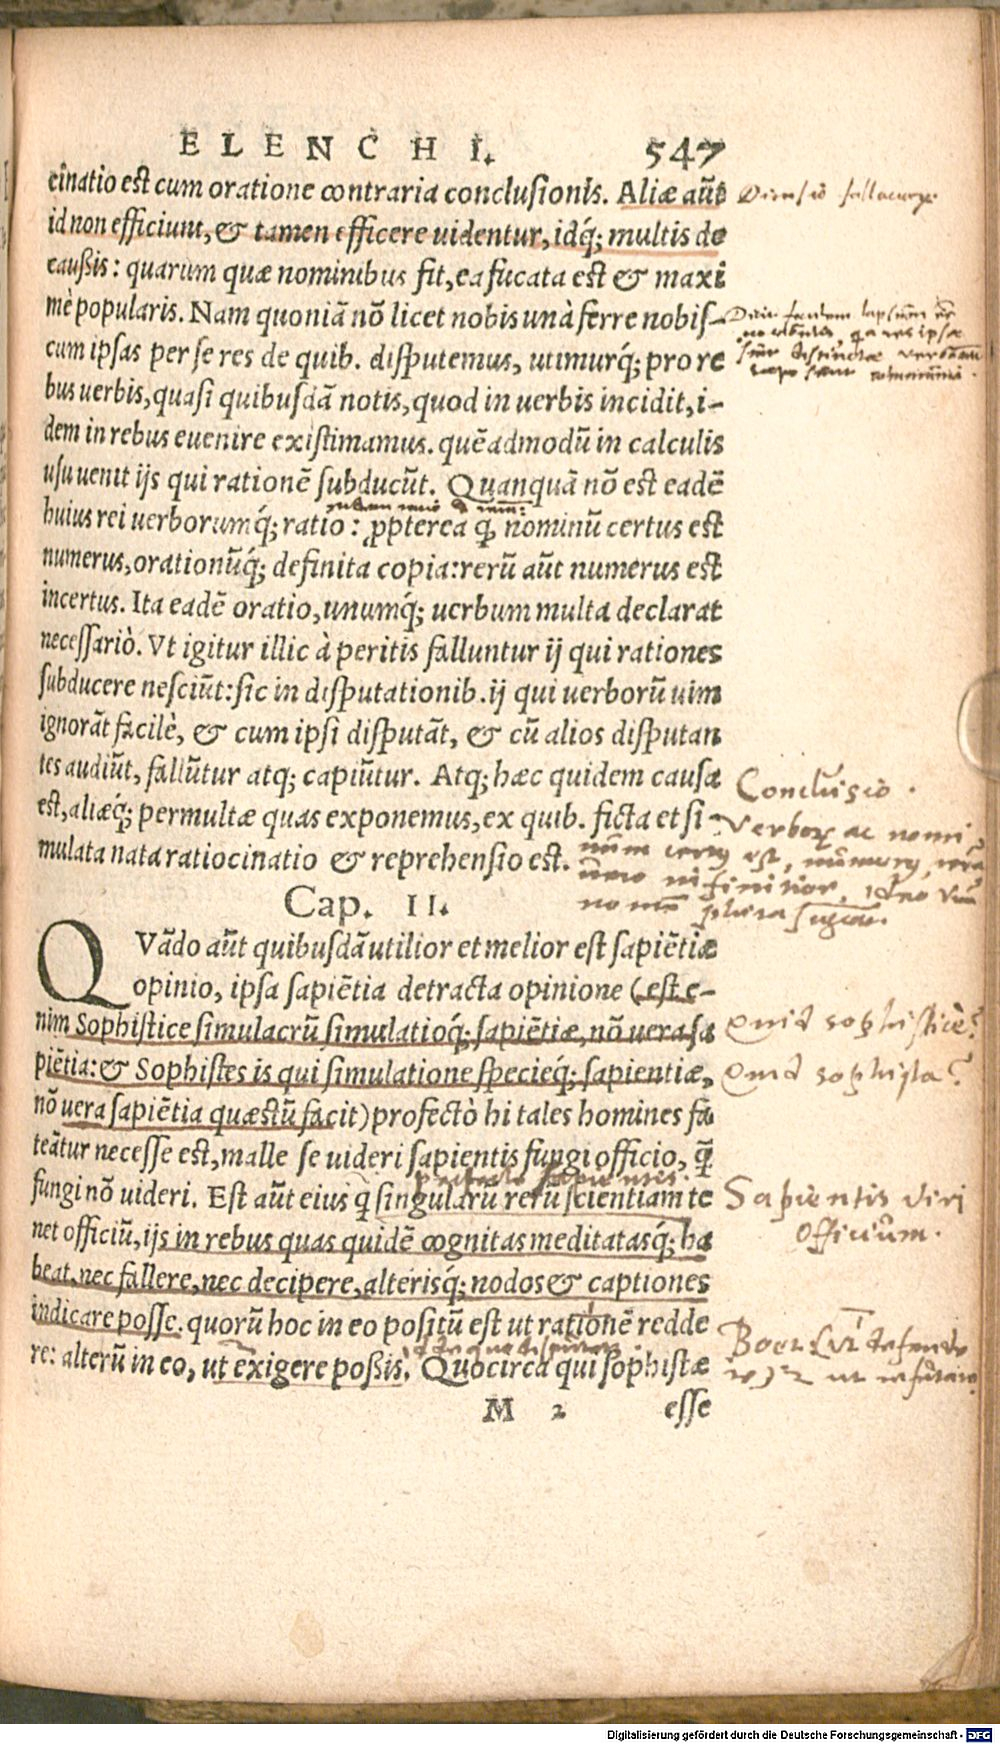 ELENCHI. 547
cinatio est cum oratione contraria conclusionis. Aliæ aũt
id non efficiunt, & tamen efficere uidentur, idq́; multis de
caußis: quarum quæ nominibus fit, ea fucata est & maxi
mè popularis. Nam quoniã nõ licet nobis unà ferre nobis-
cum ipsas per se res de quib. disputemus, utimurq́; pro re
bus uerbis, quasi quibusdã notis, quod in uerbis incidit, i-
dem in rebus euenire existimamus. quẽadmodũ in calculis
usu uenit ijs qui rationẽ subducũt. Quanquã nõ est eadẽ
huius rei uerborumq́; ratio: ꝓpterea ꝙ nominũ certus est
numerus, orationũq́; definita copia: rerũ aũt numerus est
incertus. Ita eadẽ oratio, unumq́; uerbum multa declarat
necessariò. Vt igitur illic à peritis falluntur ij qui rationes
subducere nesciũt: sic in disputationib. ij qui uerborũ uim
ignorãt facilè, & cum ipsi disputãt, & cũ alios disputan
tes audiũt, fallũtur atq; capiũtur. Atq; hæc quidem causa
est, aliæq́; permultæ quas exponemus, ex quib. ficta et si-
mulata nata ratiocinatio & reprehensio est.
Cap. II.
QVãdo aũt quibusdã utilior et melior est sapiẽtiæ
opinio, ipsa sapiẽtia detracta opinione (est e-
nim Sophistice simulacrũ simulatioq́; sapiẽtiæ, nõ uera sa
piẽtia: & Sophistes is qui simulatione specieq́; sapientiæ,
nõ uera sapiẽtia quæstũ facit) profectò hi tales homines fa
teãtur necesse est, malle se uideri sapientis fungi officio, ꝙ̃
fungi nõ uideri. Est aũt eius q̃ singularũ rerũ scientiam te
net officiũ, ijs in rebus quas quidẽ cognitas meditatasq́; ha
beat, nec fallere, nec decipere, alterisq́; nodos & captiones
indicare posse. quorũ hoc in eo positũ est ut rationẽ redde
re: alterũ in eo, ut exigere poßis. Quocirca qui sophistæ
M 2 esse
Conclusio.
Verborũ ac nomi
Quid sophisticè?
Quid sophista?
Sapientis viri
officium.
Digitalisierung gefördert durch die Deutsche Forschungsgemeinschaft - DFG